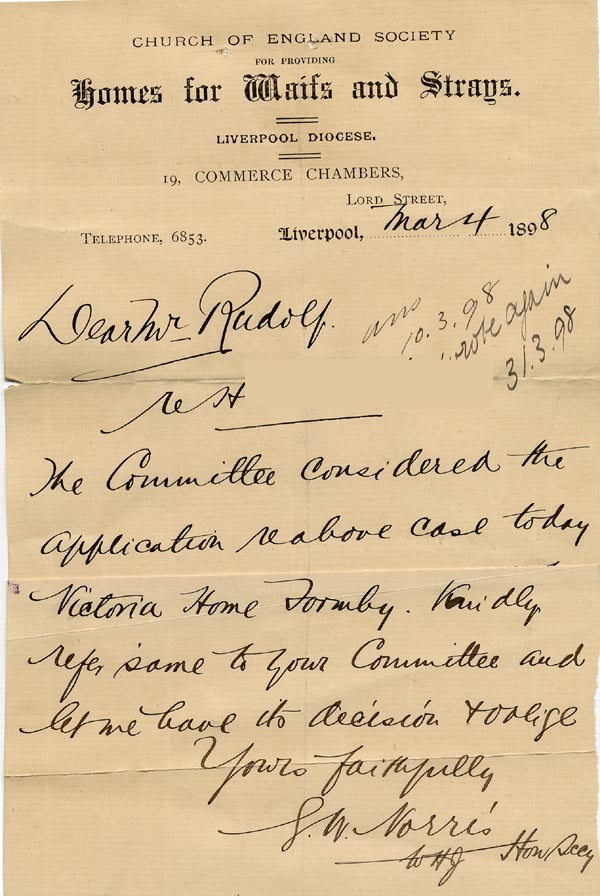 CHURCH OF ENGLAND SOCIETY
FOR PROVIDING
Homes for Waifs and Strays.
LIVERPOOL DIOCESE.
19, COMMERCE CHAMBERS,
LORD STREET,
TELEPHONE, 6853. Liverpool, Mar 4 1898
Dear Mr Rudolf.
ans
10.3.98
wrote again
31.3.98
re H
The Committee considered the
application re above case today
Victoria Home Formby. Kindly
refer same to your Committee and
let me have its decision & oblige
Yours faithfully
G. W. Norris
WHJ Hon Secy